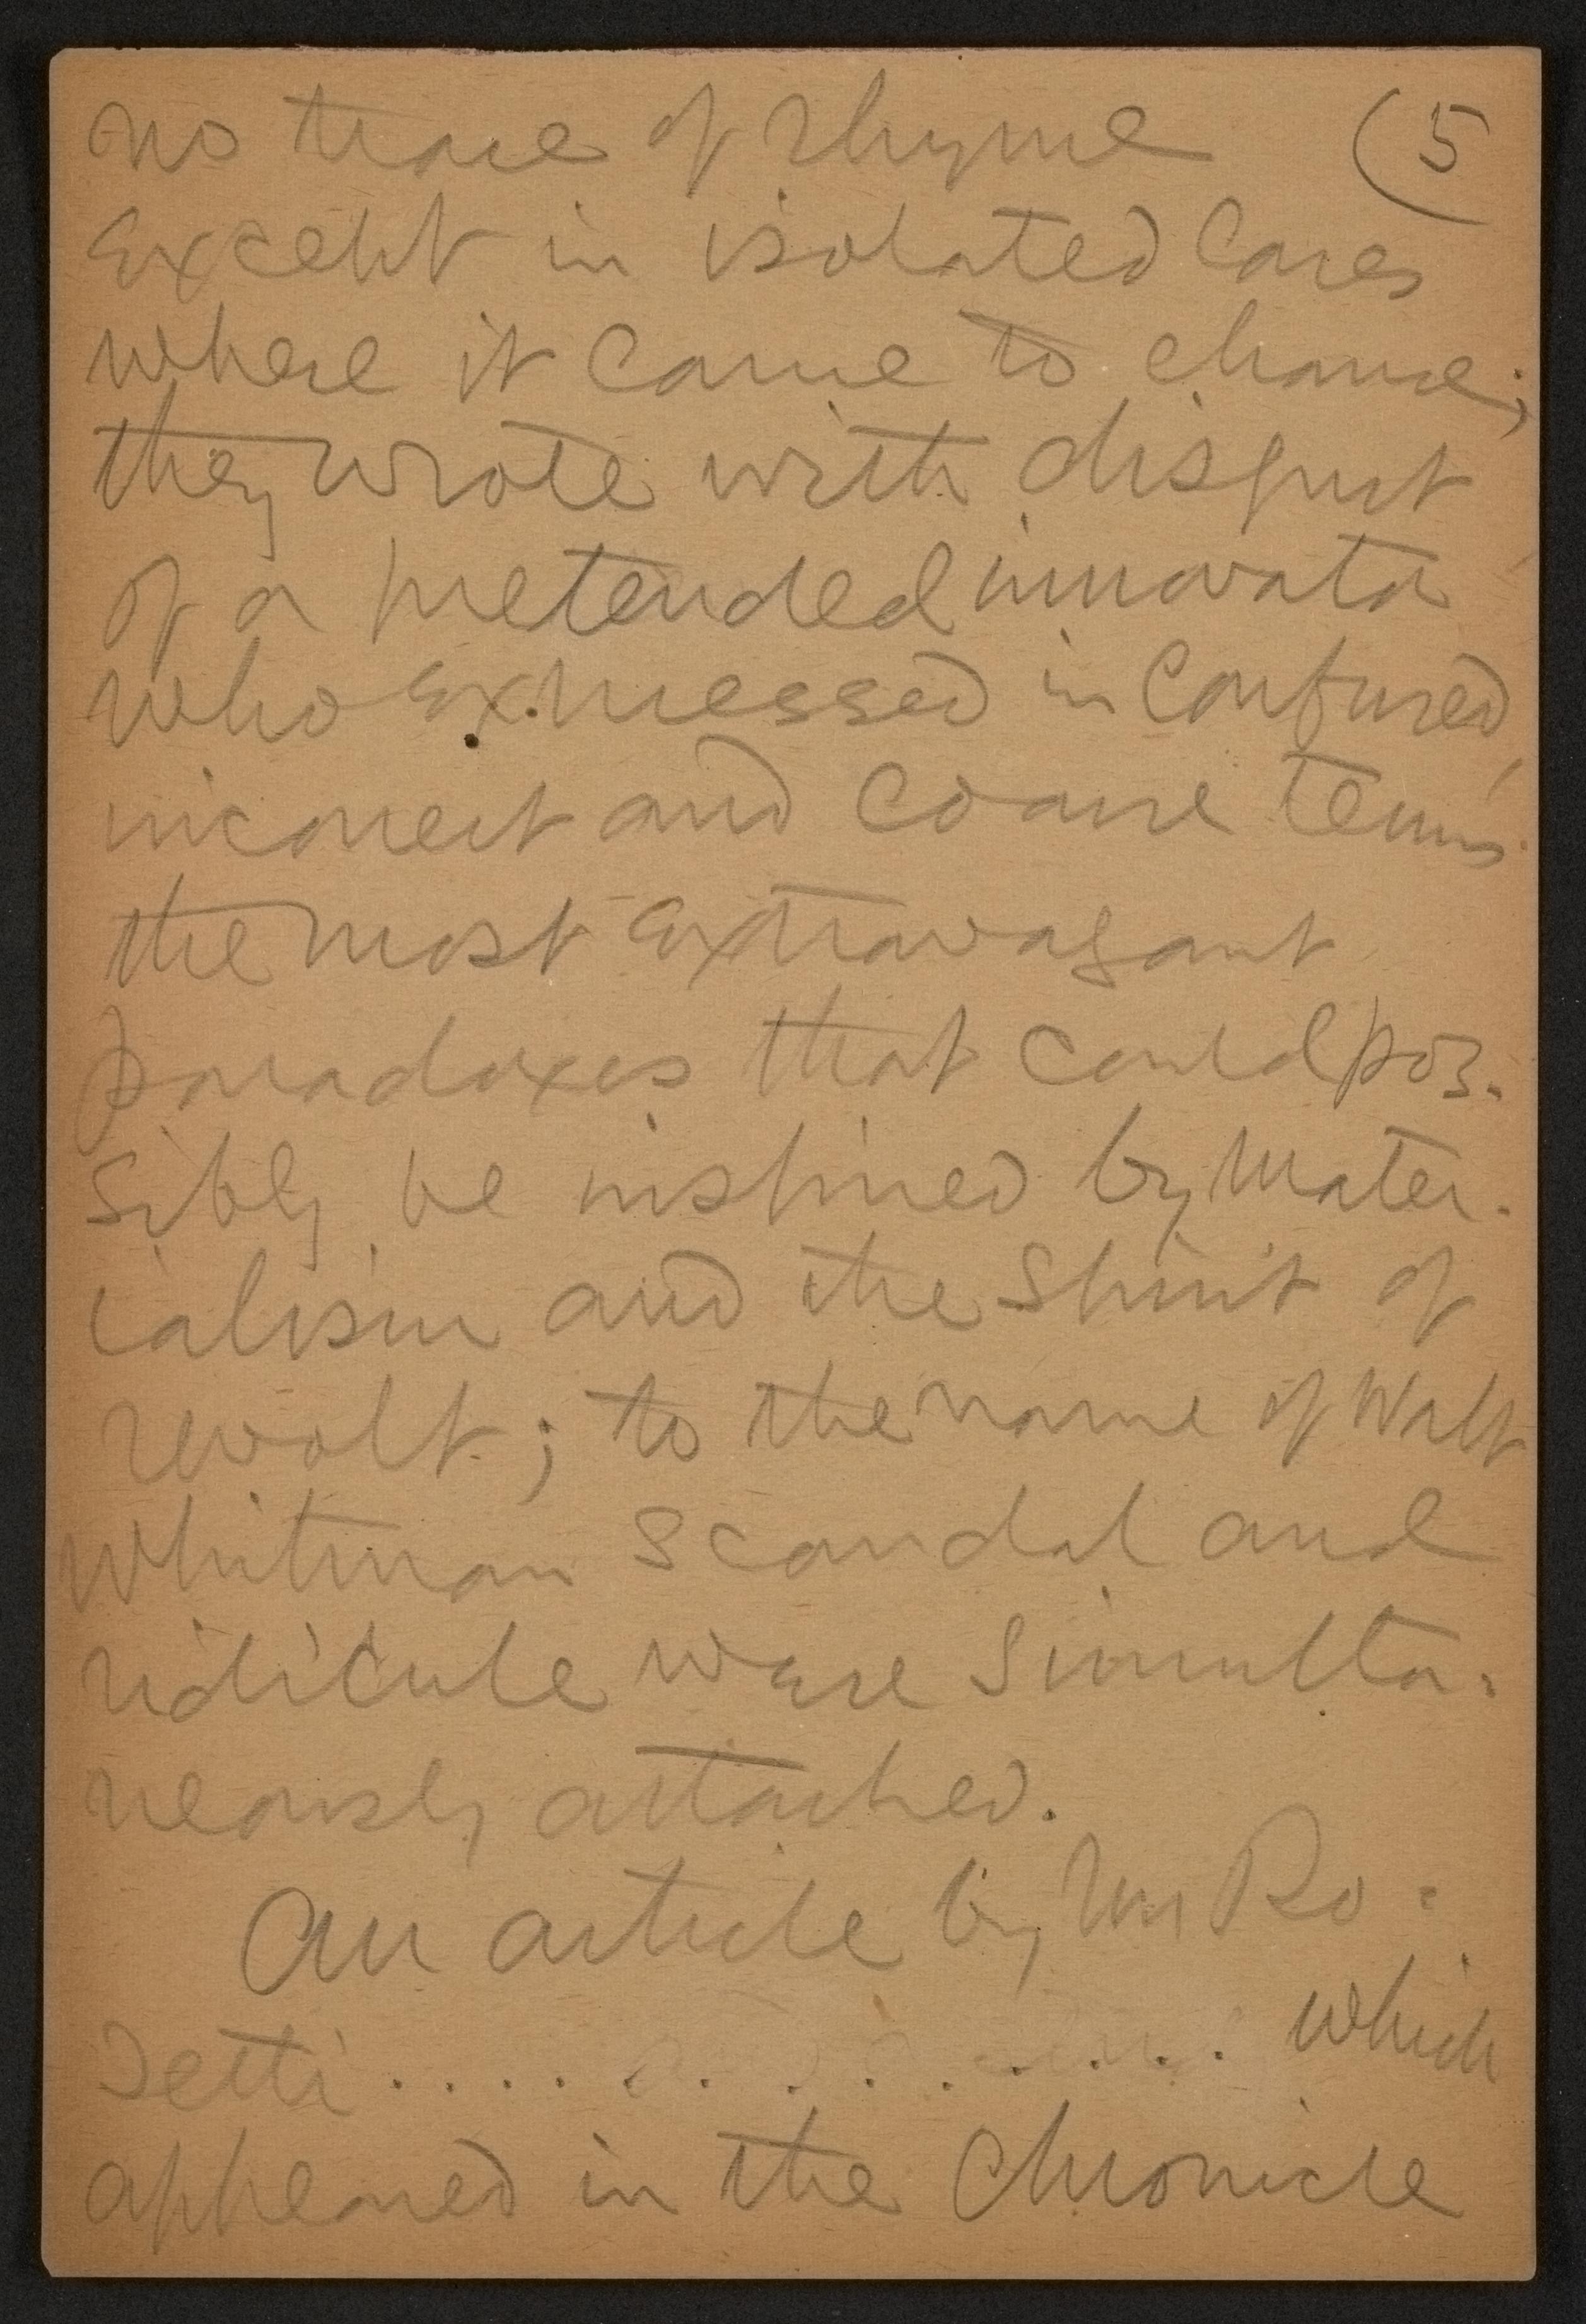 no trace of rhyme (5
except in isolated cases
where it came to chance;
they wrote with disgust
of a pretended innovator
who expressed in confused,
incorrect and coarse terms
the most extravagant
paradoxes that could pos-
sibly be inspired by mater-
ialism and the spirit of
revolt; to the name of Walt
Whitman scandal and
ridicule were simulta-
neously attached.
An article by Mr Ro-
setti . . . . . . . . . . . . . which
appeared in the Chronicle